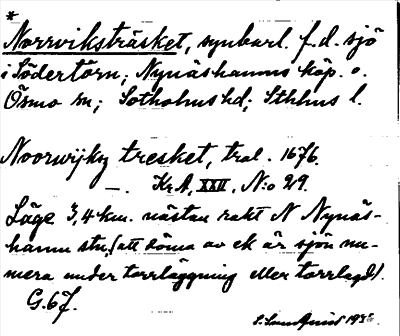 *
Norrviksträsket, synbarl. f.d. sjö
i Södertörn; Nynäshamns köp. o.
Ösmo sn; Sotholms hd; Sthlms l.
Noorwijky tresket, tral. 1676.
—. Kr.A, XXII, N:o 29.
Läge 3,4 km. nästan rakt N Nynäs-
hamn stn, (att döma av ek är sjön nu-
mera under torrläggning eller torrlagd).
G. 67.
S. Sundquist 193